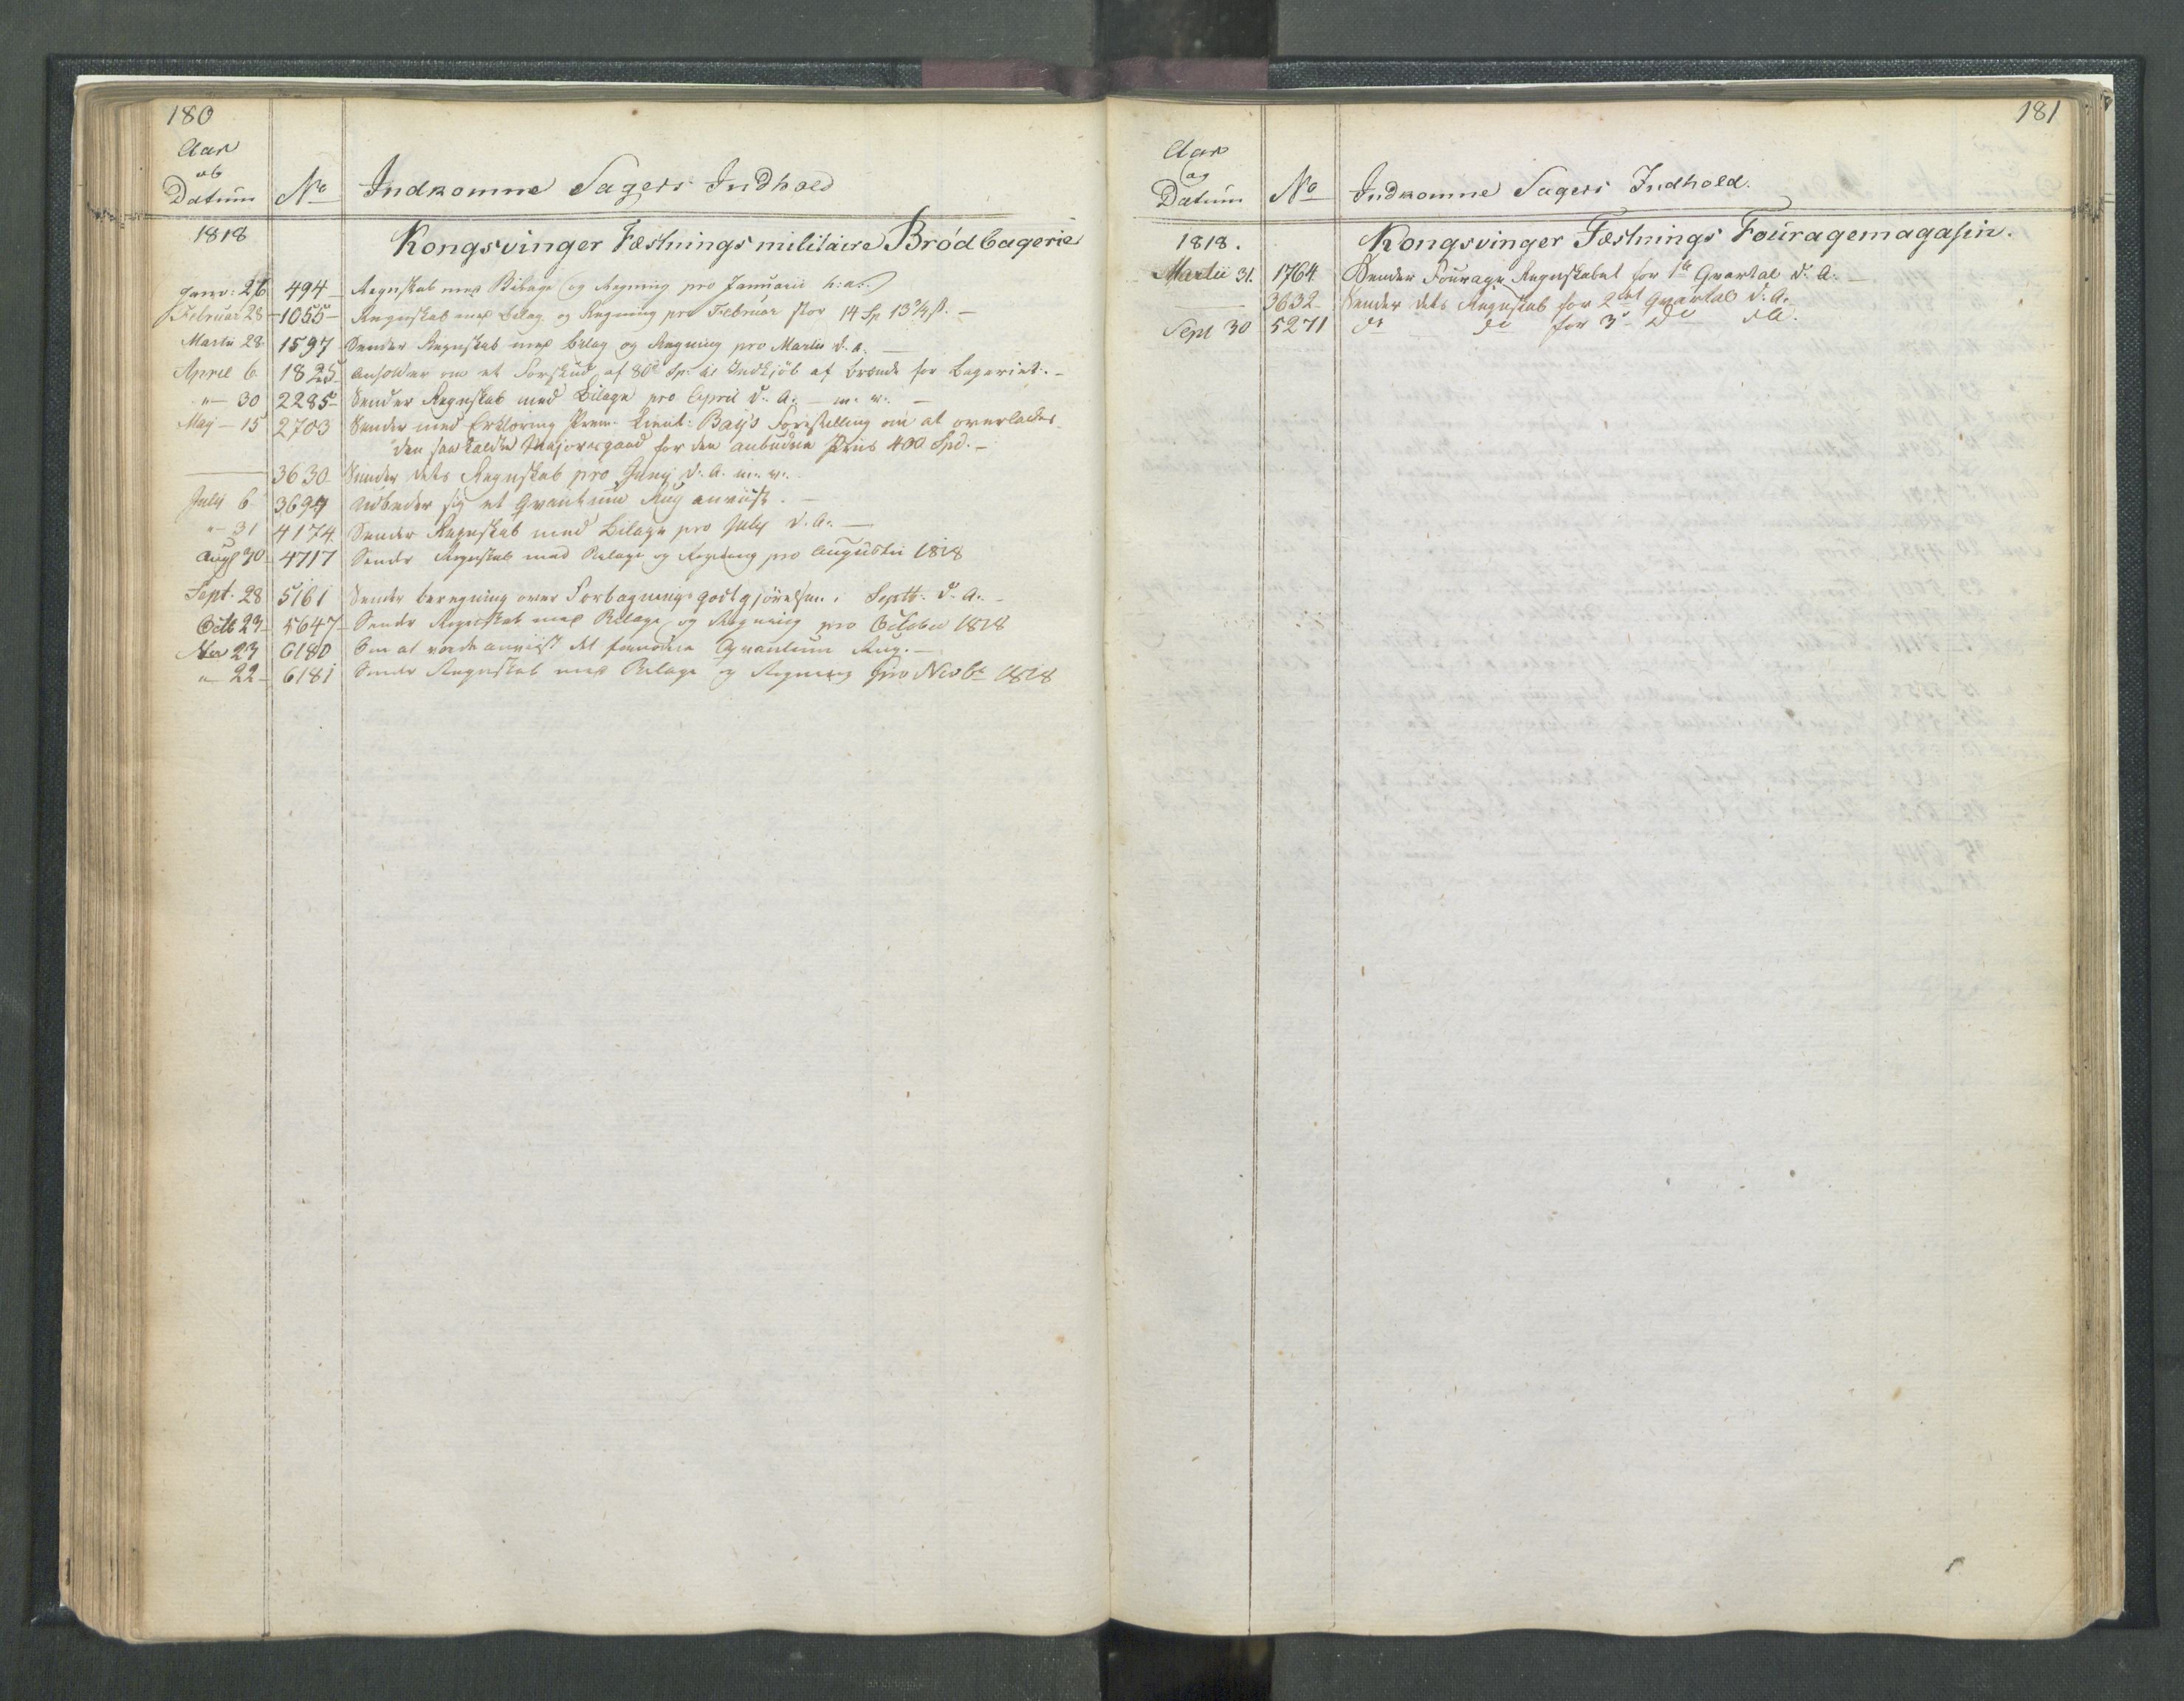 180
Aar
og
Datum No Indkomne Sagers Indhold
1818 Kongsvinger Fæstnings militaire Brødbagerie
Janv: 26 494 Regnskab med Bilage og Regning pro Januarii h: a:
Februar 28 1055 Regnskab med Bilag og Regning pro Februar stor 14 Sp 13¾ ß. —
Martii 28 1597 Sender Regnskab med Bilag og Regning pro Martii d. a. —
April 6 1825 Anholder om et Forskud af 80 Sp. til Indkjøb af Brænde for Bageriet. —
" — 30 2285 Sender Regnskab med Bilage pro April d. A. — m. v. —
Maj — 15 2703 Sender med Erklæring Prem: Lieut: Bay's Forestilling om at overlades
den saa kaldte Majorsgaard for den anbudne Priis 400 Spd. —
— 3630 Sender dets Regnskab pro Junij d. A. m. v.
July 6 3694 Udbeder sig et Qvantum Rug anviist. —
" — 31 4174 Sender Regnskab med Bilage pro July d. A. —
Augt 30 4717 Sender Regnskab med Bilage og Regning pro Augustii 1818
Sept. 28 5161 Sender beregning over Forbagnings godtgjørelsen i Septb. d. A. —
Octb 23 5647 Sender Regnskab med Bilage og Regning pro October 1818
Nov 23 6180 Om at vorde anviist det fornødne Qvantum Rug. —
" — 22 6181 Sender Regnskab med Bilage og Regning pro Novbr 1818
181
Aar
og
Datum No Indkomne Sagers Indhold.
1818. Kongsvinger Fæstnings Fouragemagasin.
Martii 31. 1764 Sender Fourage Regnskabet for 1te Qvartal d. A. —
— 3632 Sender dets Regnskab for 2det Qvartal d. A. —
Sept 30 5271 do do for 3 do dA.